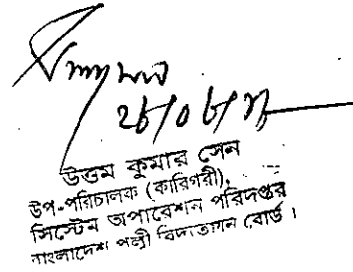 উত্তম কুমার সেন
উপ-পরিচালক (কারিগরী),
সিস্টেম অপারেশন পরিদপ্তর
বাংলাদেশ পল্লী বিদ্যুতায়ন বোর্ড ।